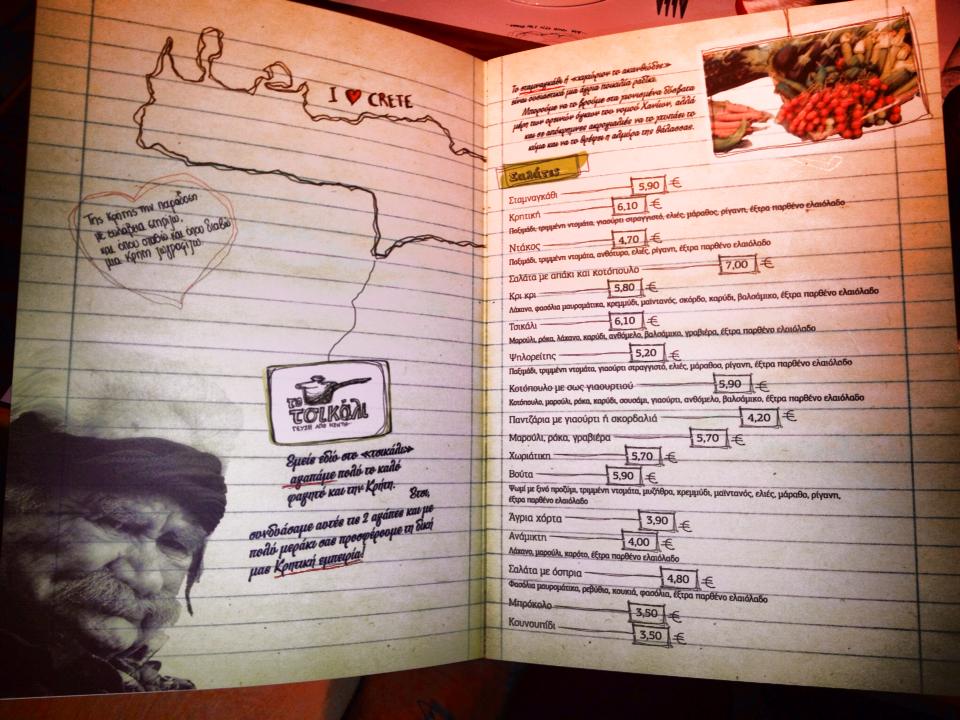 I ❤ CRETE
Της Κρήτης την παράδοση
με ευλάβεια στηρίζω,
και όπου σταθώ και όπου διαβώ
μια Κρήτη ζωγραφίζω
το
τσικάλι
ΓΕΥΣΗ ΑΠΟ ΚΡΗΤΗ
Εμείς εδώ στο «τσικάλι»
αγαπάμε πολύ το καλό
φαγητό και την Κρήτη.
Έτσι,
συνδυάσαμε αυτές τις 2 αγάπες και με
πολύ μεράκι σας προσφέρουμε τη δική
μας Κρητική εμπειρία!
Το σταμναγκάθι ή «κιχώριον το ακανθώδες»
είναι ουσιαστικά μια άγρια ποικιλία ραδίκι.
Μπορούμε να το βρούμε στα χιονισμένα δύσβατα
μέρη των ορεινών όγκων του νομού Χανίων, αλλά
και σε απόκρημνες ακρογιαλιές να το χτυπάει το
κύμα και να το θρέφει η αλμύρα της θάλασσας.
Σαλάτες
Σταμναγκάθι 5,90 €
Κρητική 6,10 €
Παξιμάδι, τριμμένη ντομάτα, γιαούρτι στραγγιστό, ελιές, μάραθος, ρίγανη, έξτρα παρθένο ελαιόλαδο
Ντάκος 4,70 €
Παξιμάδι, τριμμένη ντομάτα, ανθότυρο, ελιές, ρίγανη, έξτρα παρθένο ελαιόλαδο
Σαλάτα με απάκι και κοτόπουλο 7,00 €
Κρι κρι 5,80 €
Λάχανο, φασόλια μαυρομάτικα, κρεμμύδι, μαϊντανός, σκόρδο, καρύδι, βαλσάμικο, έξτρα παρθένο ελαιόλαδο
Τσικάλι 6,10 €
Μαρούλι, ρόκα, λάχανο, καρύδι, ανθόμελο, βαλσάμικο, γραβιέρα, έξτρα παρθένο ελαιόλαδο
Ψηλορείτης 5,20 €
Παξιμάδι, τριμμένη ντομάτα, γιαούρτι στραγγιστό, ελιές, μάραθος, ρίγανη, έξτρα παρθένο ελαιόλαδο
Κοτόπουλο με σως γιαουρτιού 5,90 €
Κοτόπουλο, μαρούλι, ρόκα, καρύδι, σουσάμι, γιαούρτι, ανθόμελο, βαλσάμικο, έξτρα παρθένο ελαιόλαδο
Παντζάρια με γιαούρτι ή σκορδαλιά 4,20 €
Μαρούλι, ρόκα, γραβιέρα 5,70 €
Χωριάτικη 5,70 €
Βούτα 5,90 €
Ψωμί με ξινό προζύμι, τριμμένη ντομάτα, μυζήθρα, κρεμμύδι, μαϊντανός, ελιές, μάραθο, ρίγανη,
έξτρα παρθένο ελαιόλαδο
Άγρια χόρτα 3,90 €
Ανάμικτη 4,00 €
Λάχανο, μαρούλι, καρότο, έξτρα παρθένο ελαιόλαδο
Σαλάτα με όσπρια 4,80 €
Φασόλια μαυρομάτικα, ρεβύθια, κουκιά, φασόλια, έξτρα παρθένο ελαιόλαδο
Μπρόκολο 3,50 €
Κουνουπίδι 3,50 €